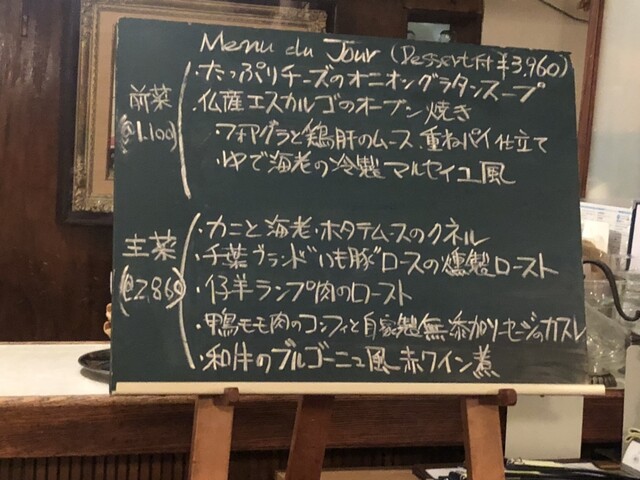 Menu du Jour (Dessert付 ¥3,960)
前菜
(@1.100)
・たっぷりチーズのオニオングラタンスープ
・仏産エスカルゴのオーブン焼き
・フォアグラと鶏肝のムース 重ねパイ仕立て
・ゆで海老の冷製 マルセイユ風
主菜
(@2,860)
・カニと海老・ホタテムースのクネル
・千葉ブランド"いも豚"ロースの燻製ロースト
・仔羊ランプ肉のロースト
・鴨モモ肉のコンフィと自家製無添加ソーセージのカスレ
・和牛のブルゴーニュ風赤ワイン煮